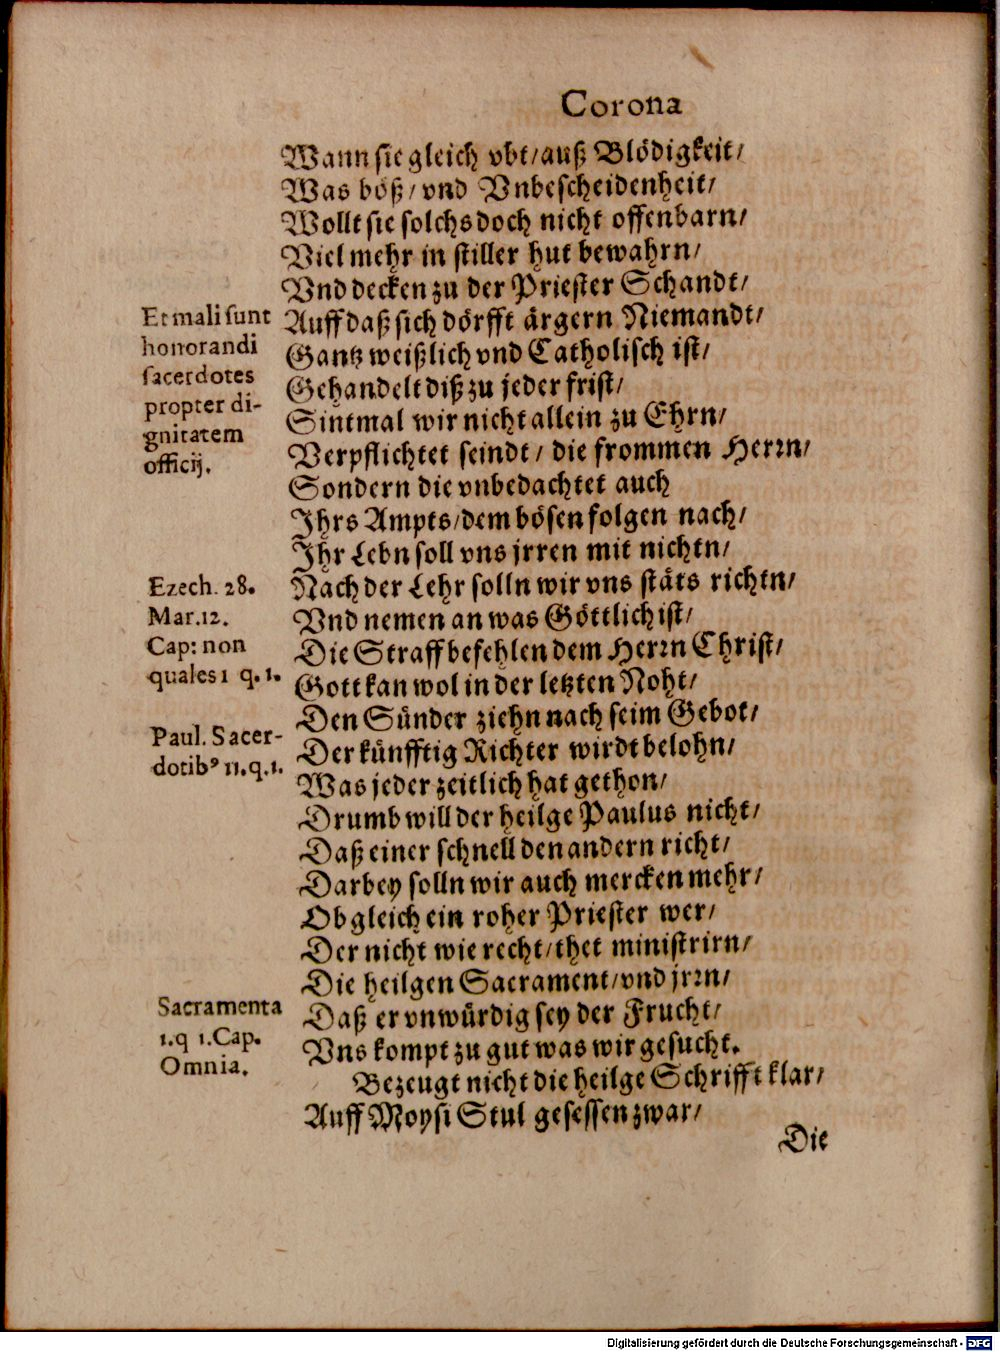 Corona
Wann sie gleich vbt/auß Blödigkeit/
Was böß/ vnd Vnbescheidenheit/
Wollt sie solchs doch nicht offenbarn/
Viel mehr in stiller hut bewahrn/
Vnd decken zu der Priester Schandt/
Auff daß sich dörfft ärgern Niemandt/
Gantz weißlich vnd Catholisch ist/
Gehandelt diß zu jeder frist/
Sintmal wir nicht allein zu Ehrn/
Verpflichtet seindt / die frommen Herrn/
Sondern die vnbedachtet auch
Ihrs Ampts/dem bösen folgen nach/
Ihr Lebn soll vns jrren mit nichtn/
Nach der Lehr solln wir vns stäts richtn/
Vnd nemen an was Göttlich ist/
Die Straff befehlen dem Herrn Christ/
Gott kan wol in der letzten Noht/
Den Sünder ziehn nach seim Gebot/
Der künfftig Richter wirdt belohn/
Was jeder zeitlich hat gethon/
Drumb will der heilge Paulus nicht/
Daß einer schnell den andern richt/
Darbey solln wir auch mercken mehr/
Ob gleich ein roher Priester wer/
Der nicht wie recht/thet ministrirn/
Die heilgen Sacrament/vnd jrrn/
Daß er vnwürdig sey der Frucht/
Vns kompt zu gut was wir gesucht.
Bezeugt nicht die heilge Schrifft klar/
Auff Moysi Stul gesessen zwar/
Die
Et mali sunt
honorandi
sacerdotes
propter di-
gnitatem
officij.
Ezech. 28.
Mar.12.
Cap: non
quales 1 q.1.
Paul. Sacer-
dotibꝰ 11.q.1.
Sacramenta
1.q 1.Cap.
Omnia.
Digitalisierung gefördert durch die Deutsche Forschungsgemeinschaft - DFG